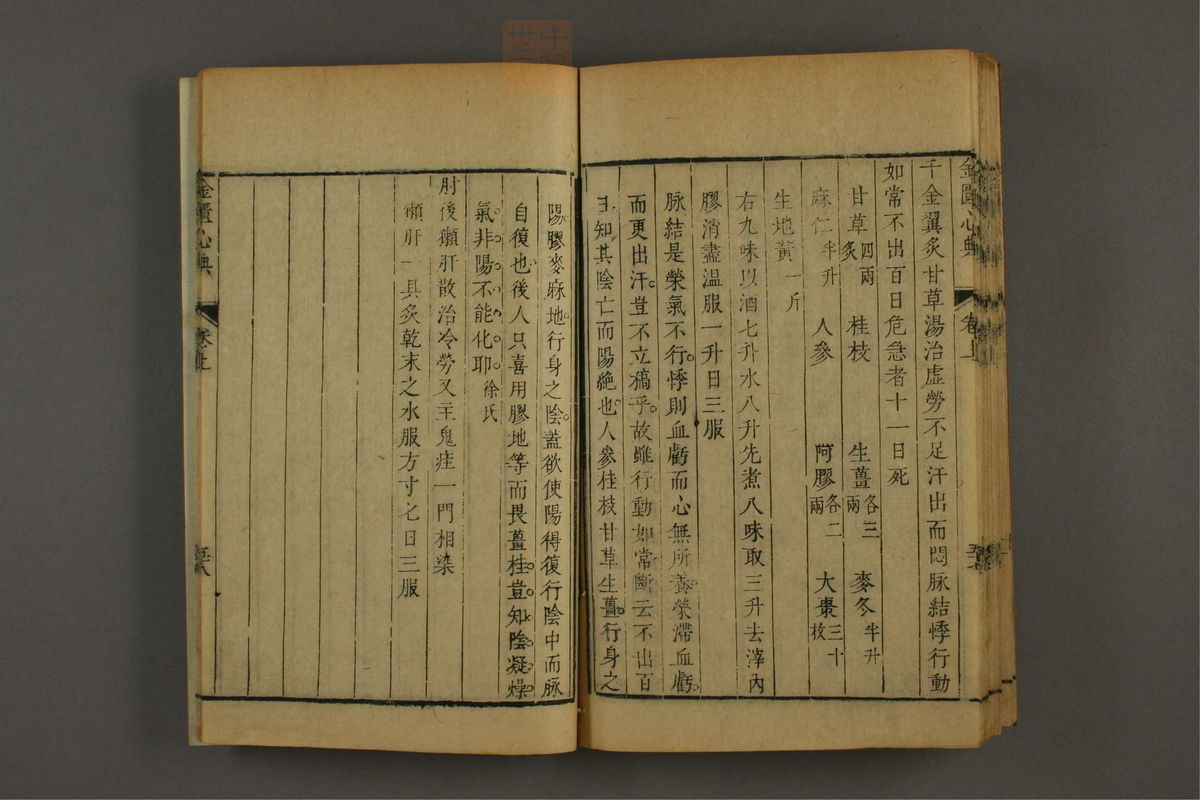 金匱心典
卷上
千金翼炙甘草湯治虛勞不足汗出而悶脉結悸行動
如常不出百日危急者十一日死
甘草四兩炙 桂枝 生薑各三兩 麥冬半升
麻仁半升 人參 阿膠各二兩 大棗三十枚
生地黃一斤
右九味以酒七升水八升先煮八味取三升去滓內
膠消盡温服一升日三服
脉結是榮氣不行悸則血虧而心無所養榮滯血虧
而更出汗豈不立槁乎故雖行動如常斷云不出百
日知其陰亡而陽絶也人參桂枝甘草生薑行身之
陽膠麥麻地行身之陰蓋欲使陽得復行陰中而脉
自復也後人只喜用膠地等而畏薑桂豈知陰凝燥
氣非陽不能化耶徐氏
肘後獺肝散治冷勞又主鬼疰一門相染
獺肝一具炙乾末之水服方寸匕日三服
金匱心典
卷上